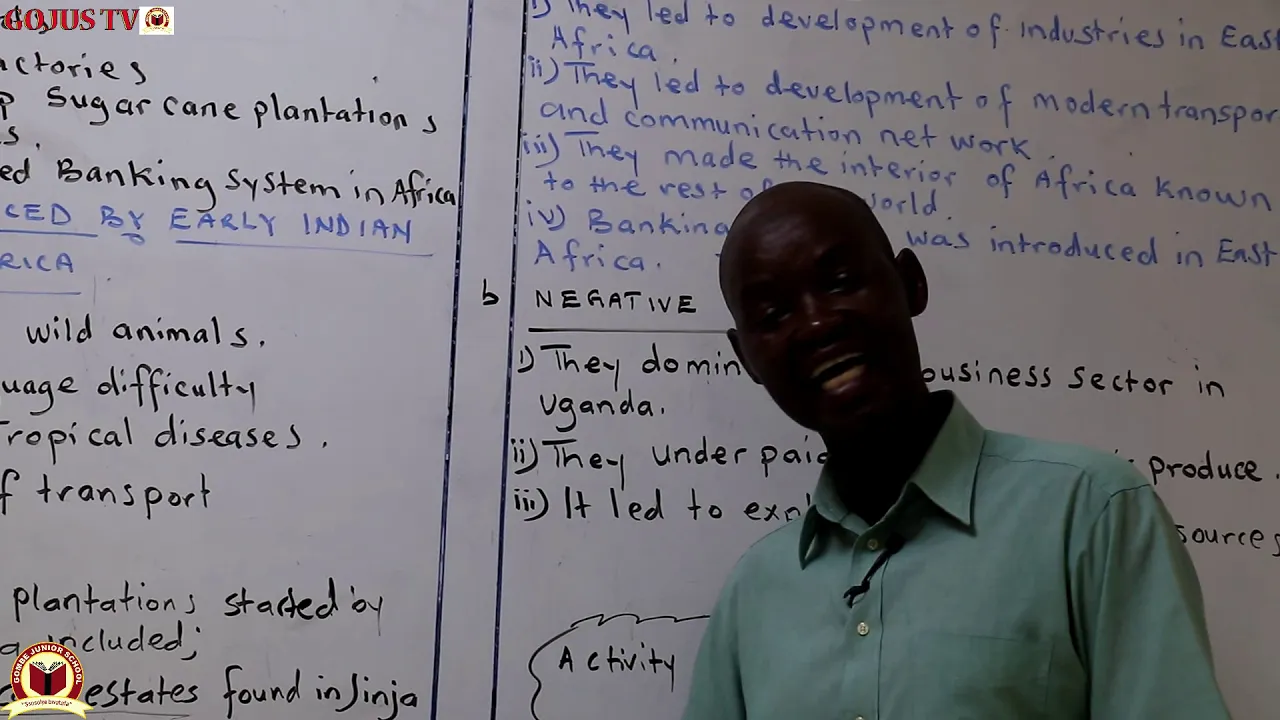 GOJUS TV
ctories
Sugar cane plantations
s.
ed Banking system in Africa
CED BY EARLY INDIAN
RICA
wild animals.
uage difficulty
Tropical diseases.
f transport
plantations started by
included;
estates found in Jinja
GOMBE JUNIOR SCHOOL
i) They led to development of industries in East
Africa.
ii) They led to development of modern transpor
and communication net work.
iii) They made the interior of Africa known
to the rest of world.
iv) Banking was introduced in East
Africa.
b NEGATIVE
i) They domin business sector in
Uganda.
ii) They under paid produce.
iii) It led to expl sources
Activity